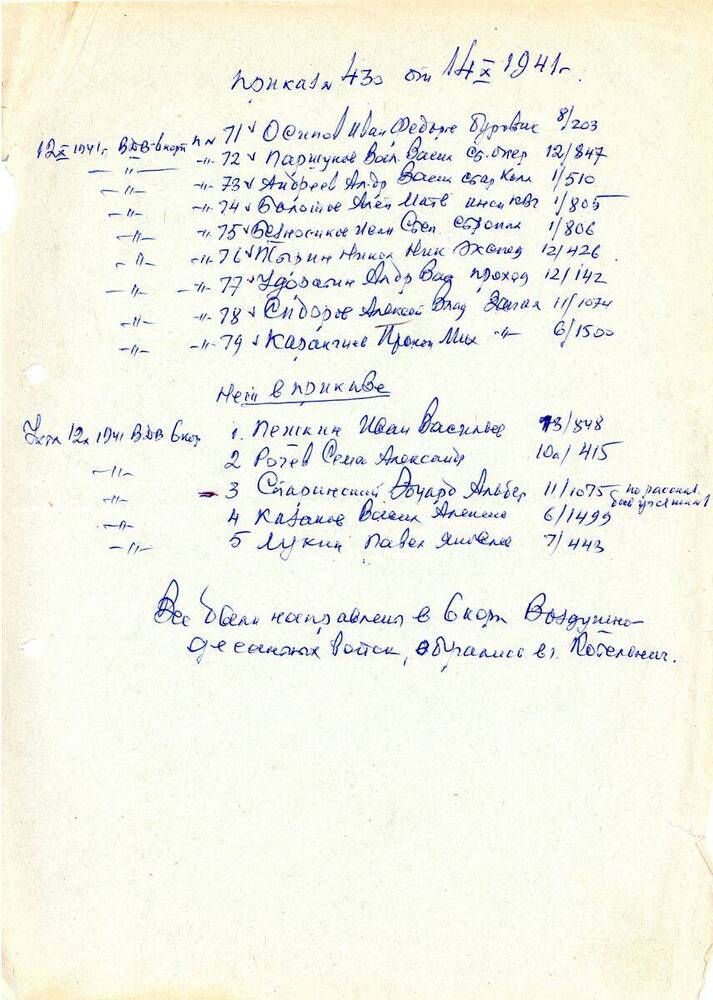 приказ 430 от 14 X 1941 г.
12 X 1941 г. ВДВ-6 корп п. № 71 v Осипов Иван Федор Буровик 8/203
-"- -"- 72 v Паршуков Васил. Васил ст. опер 12/847
-"- -"- 73 v Андреев Ал-др Васил стар Колл 1/510
-"- -"- 74 v Болотов Алек Матв 1/805
-"- -"- 75 v Безносиков Иван Степ 1/806
-"- -"- 76 v Тырин Никол Ник Экспед 12/426
-"- -"- 77 v Удоратин Ал-др Вас проход 12/142
-"- -"- 78 v Сидоров Алексей Влад 11/1074
-"- -"- 79 v Казанцев Прокоп Мих -"- 6/1500
Нет в приказе
12 X 1941 ВДВ 6 кор 1. Пешкин Иван Василье 13/848
-"- 2 Рочев Сем Александр 10а/415
-"- 3 Старинский Эдуард Альбер 11/1075 по рассказ.
-"- 4 Казаков Васил Алексе 6/1499
-"- 5 Лукин Павел Яковле 7/443
Все были направлены в 6 корп Воздушно-
десантных войск, обучались в г. Котельнич.